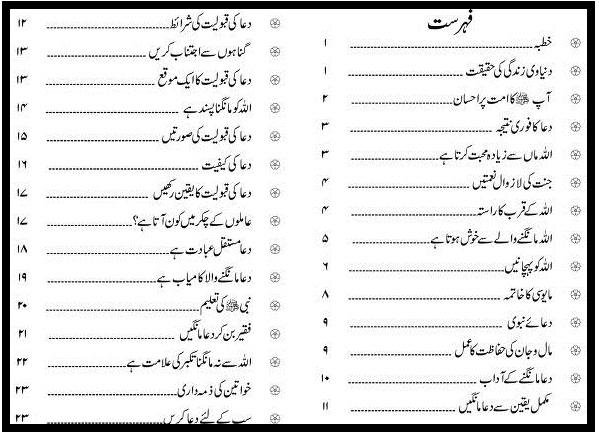 فہرست
خطبہ ۱
دنیاوی زندگی کی حقیقت ۱
آپ ﷺ کا امت پر احسان ۲
دعا کا فوری نتیجہ ۳
اللہ ماں سے زیادہ محبت کرتا ہے ۳
جنت کی لازوال نعمتیں ۴
اللہ کے قرب کا راستہ ۴
اللہ مانگنے والے سے خوش ہوتا ہے ۵
اللہ کو پہچانیں ۶
مایوسی کا خاتمہ ۸
دعائے نبوی ۹
مال و جان کی حفاظت کا عمل ۹
دعا مانگنے کے آداب ۱۰
مکمل یقین سے دعا مانگیں ۱۱
دعا کی قبولیت کی شرائط ۱۲
گناہوں سے اجتناب کریں ۱۳
دعا کی قبولیت کا ایک موقع ۱۳
اللہ کو مانگنا پسند ہے ۱۴
دعا کی قبولیت کی صورتیں ۱۵
دعا کی کیفیت ۱۶
دعا کی قبولیت کا یقین رکھیں ۱۷
عاملوں کے چکر میں کون آتا ہے؟ ۱۷
دعا مستقل عبادت ہے ۱۸
دعا مانگنے والا کامیاب ہے ۱۹
نبی ﷺ کی تعلیم ۲۰
فقیر بن کر دعا مانگیں ۲۱
اللہ سے نہ مانگنا تکبر کی علامت ہے ۲۲
خواتین کی ذمہ داری ۲۳
سب کے لئے دعا کریں ۲۳